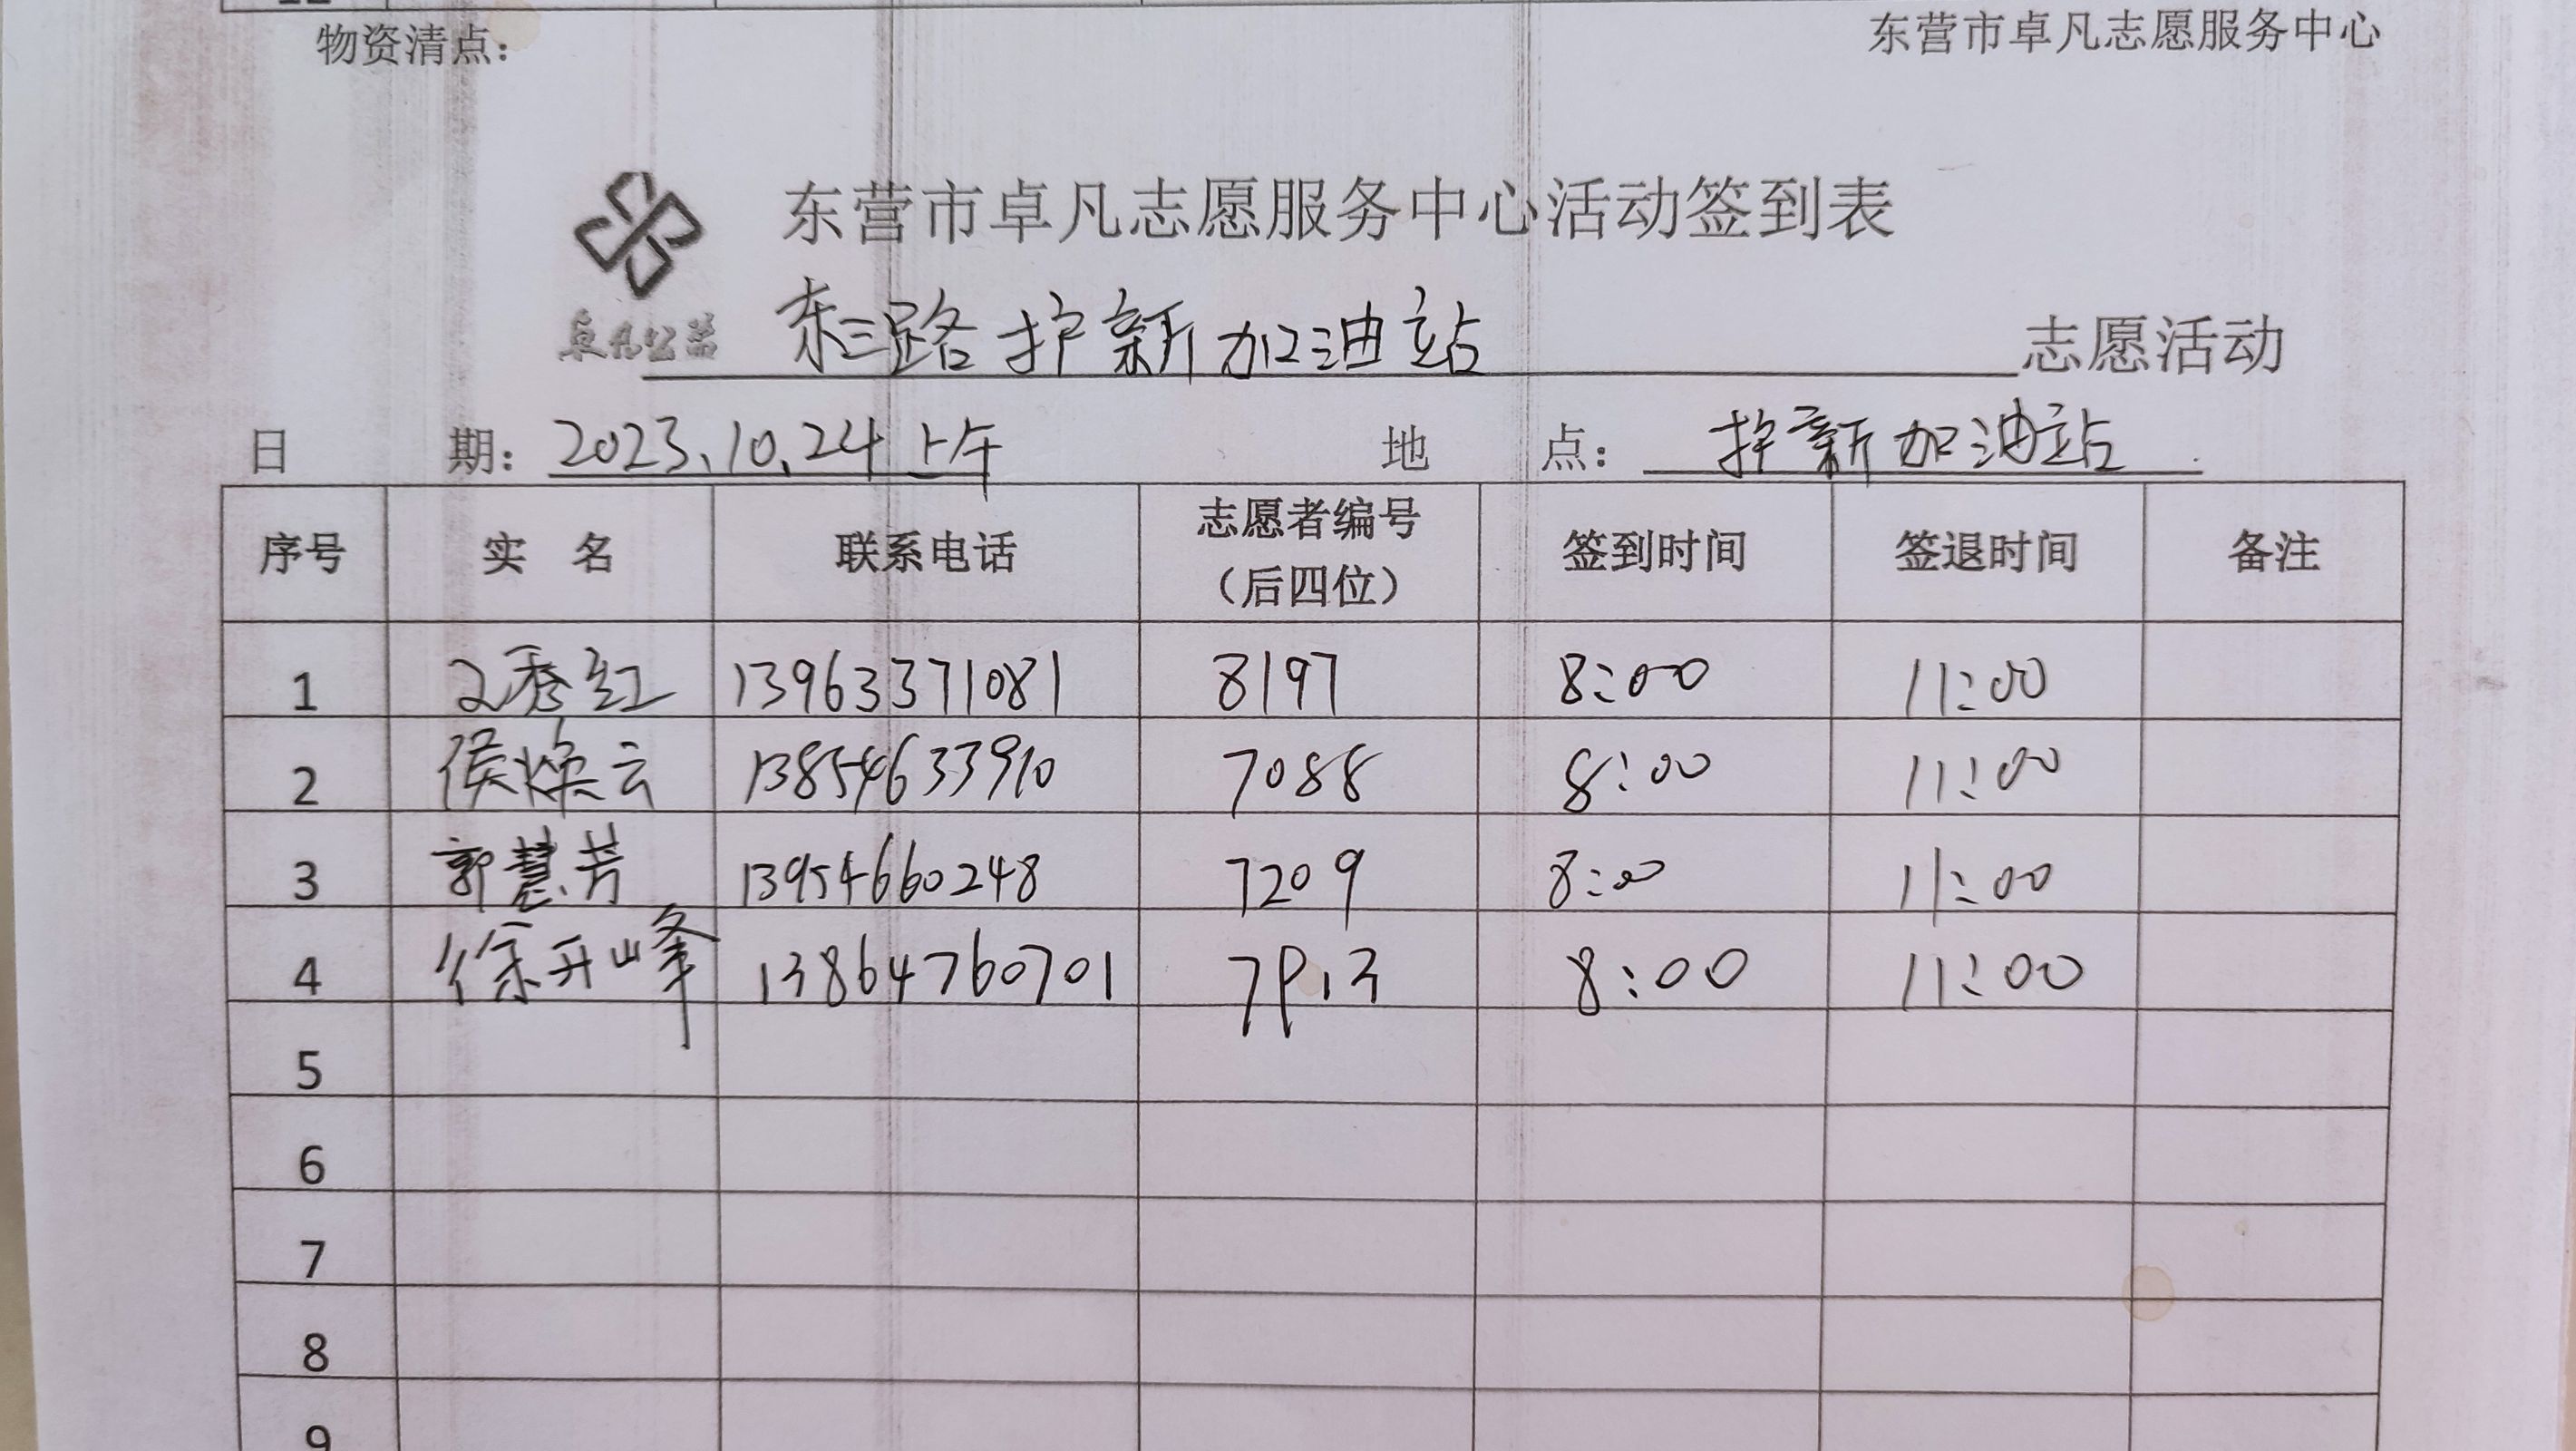 物资清点：
东营市卓凡志愿服务中心
东营市卓凡志愿服务中心活动签到表
卓凡公益
东三路护新加油站 志愿活动
日 期： 2023.10.24 上午 地 点： 护新加油站
序号 实 名 联系电话 志愿者编号（后四位） 签到时间 签退时间 备注
1 秀红 13963371081 8197 8:00 11:00
2 侯焕云 13854633910 7088 8:00 11:00
3 郭慧芳 13954660248 7209 8:00 11:00
4 徐开峰 13864760701 7913 8:00 11:00
5
6
7
8
9